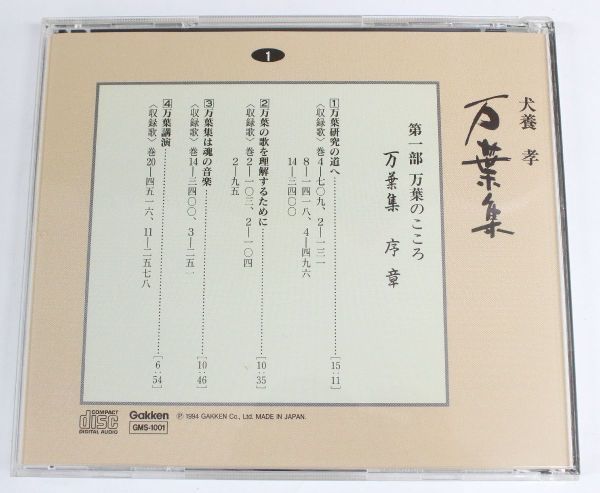 犬養 孝
万葉集
1
第一部 万葉のこころ
万葉集 序章
1 万葉研究の道へ………[15:11]
〈収録歌〉巻4—七〇九、2—一三一
8—一四一八、4—四九六
14—三四〇〇
2 万葉の歌を理解するために………[10:35]
〈収録歌〉巻2—一〇三、2—一〇四
2—九五
3 万葉集は魂の音楽………[10:46]
〈収録歌〉巻14—三四〇〇、3—二五一
4 万葉講演………[6:54]
〈収録歌〉巻20—四五一六、11—二五七八
COMPACT
disc
DIGITAL AUDIO
Gakken
GMS-1001
Ⓟ 1994 GAKKEN Co., Ltd. MADE IN JAPAN.